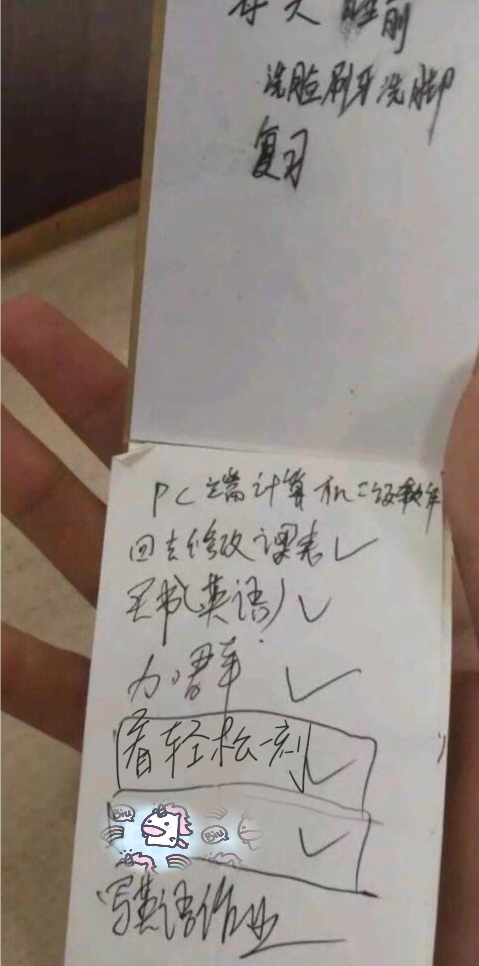 每天睡前
洗脸刷牙洗脚
复习
PC端计算机二级软件
回去修改课表✓
买书(英语)✓
加群 ✓
看轻松一刻✓
Biu Biu ✓
写英语作业